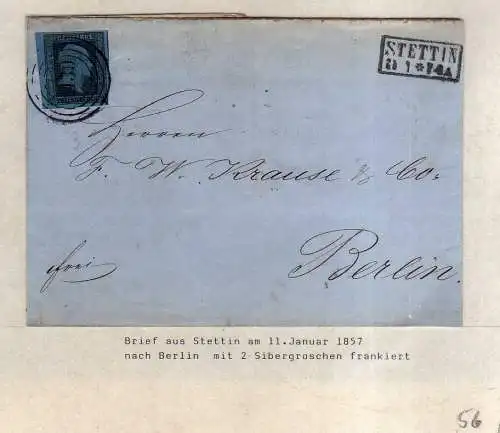 STETTIN
Herren
F. W. Krause & Co:
Berlin.
frei
Brief aus Stettin am 11.Januar 1857
nach Berlin mit 2 Sibergroschen frankiert
56